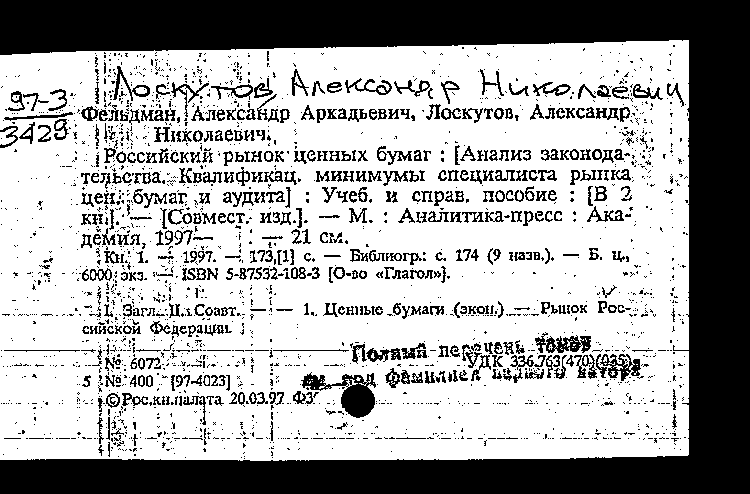 Лоскутов, Александр Николаевич
97-3
3429
Фельдман, Александр Аркадьевич, Лоскутов, Александр
Николаевич.
Российский рынок ценных бумаг : [Анализ законода-
тельства. Квалификац. минимумы специалиста рынка
цен. бумаг и аудита] : Учеб. и справ. пособие : [В 2
кн.]. — [Совмест. изд.]. — М. : Аналитика-пресс : Ака-
демия, 1997— . — 21 см.
Кн. 1. — 1997. — 173,[1] с. — Библиогр.: с. 174 (9 назв.). — Б. ц.,
6000 экз. — ISBN 5-87532-108-3 [О-во «Глагол»].
I. Загл. II. Соавт. — — 1. Ценные бумаги (экон.) — Рынок Рос-
сийской Федерации.
Полный перечень томов
№ 6072 УДК 336.763(470)(035)
см. под фамилией первого автора
5 № 400 [97-4023]
© Рос.кн.палата 20.03.97 ФЗ